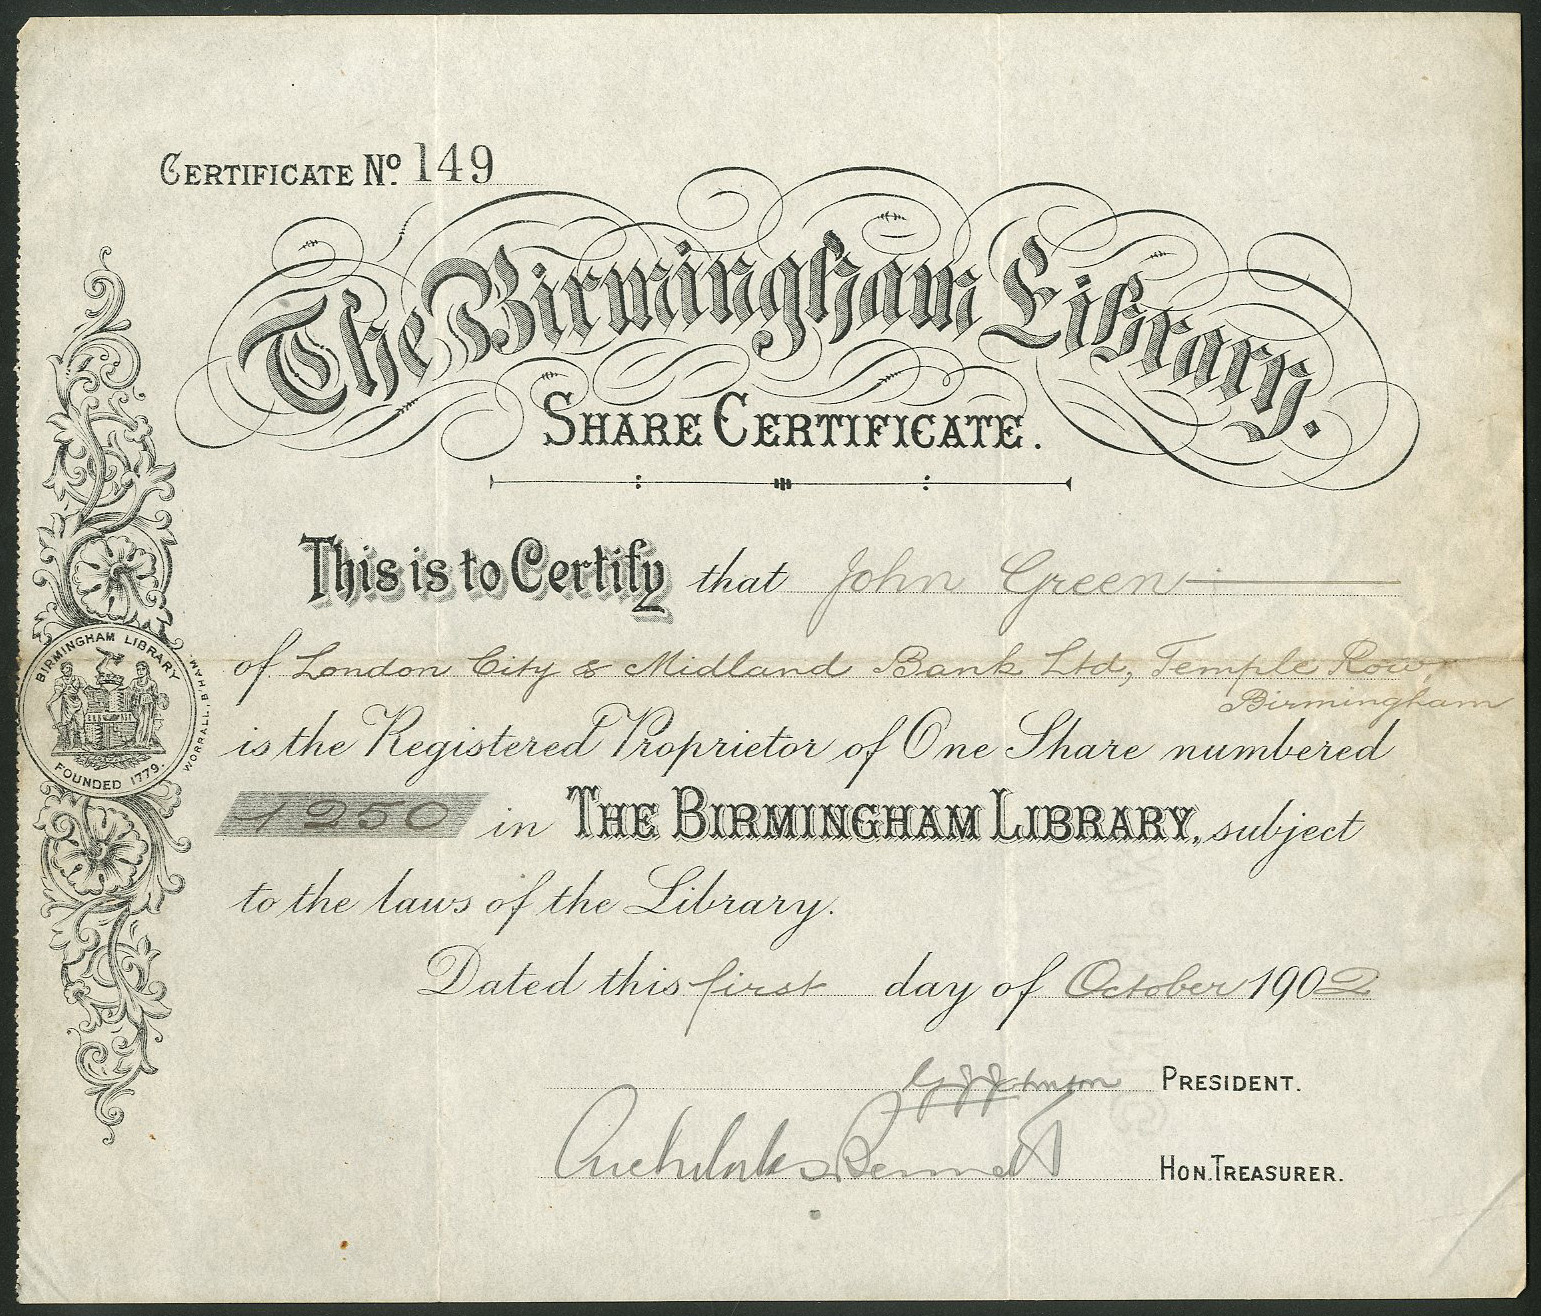 CERTIFICATE Nº. 149
The Birmingham Library.
SHARE CERTIFICATE.
This is to Certify that John Green
of London City & Midland Bank Ltd, Temple Row,
Birmingham
is the Registered Proprietor of One Share numbered
1250 in THE BIRMINGHAM LIBRARY, subject
to the laws of the Library.
Dated this first day of October 1902
PRESIDENT.
Bennett HON. TREASURER.
BIRMINGHAM LIBRARY
FOUNDED 1779.
WORRALL, B'HAM.